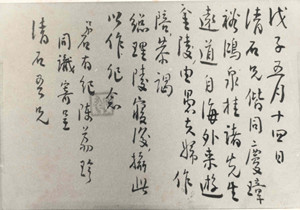 戊子五月十四日
清石兄偕同慶璋
裕鴻泉桂諸先生
遠道自海外來遊
金陵由愚夫婦作
陪恭謁
總理陵寢後攝此
以作紀念
君有紀陳荔珍
同識寄呈
清石吾兄